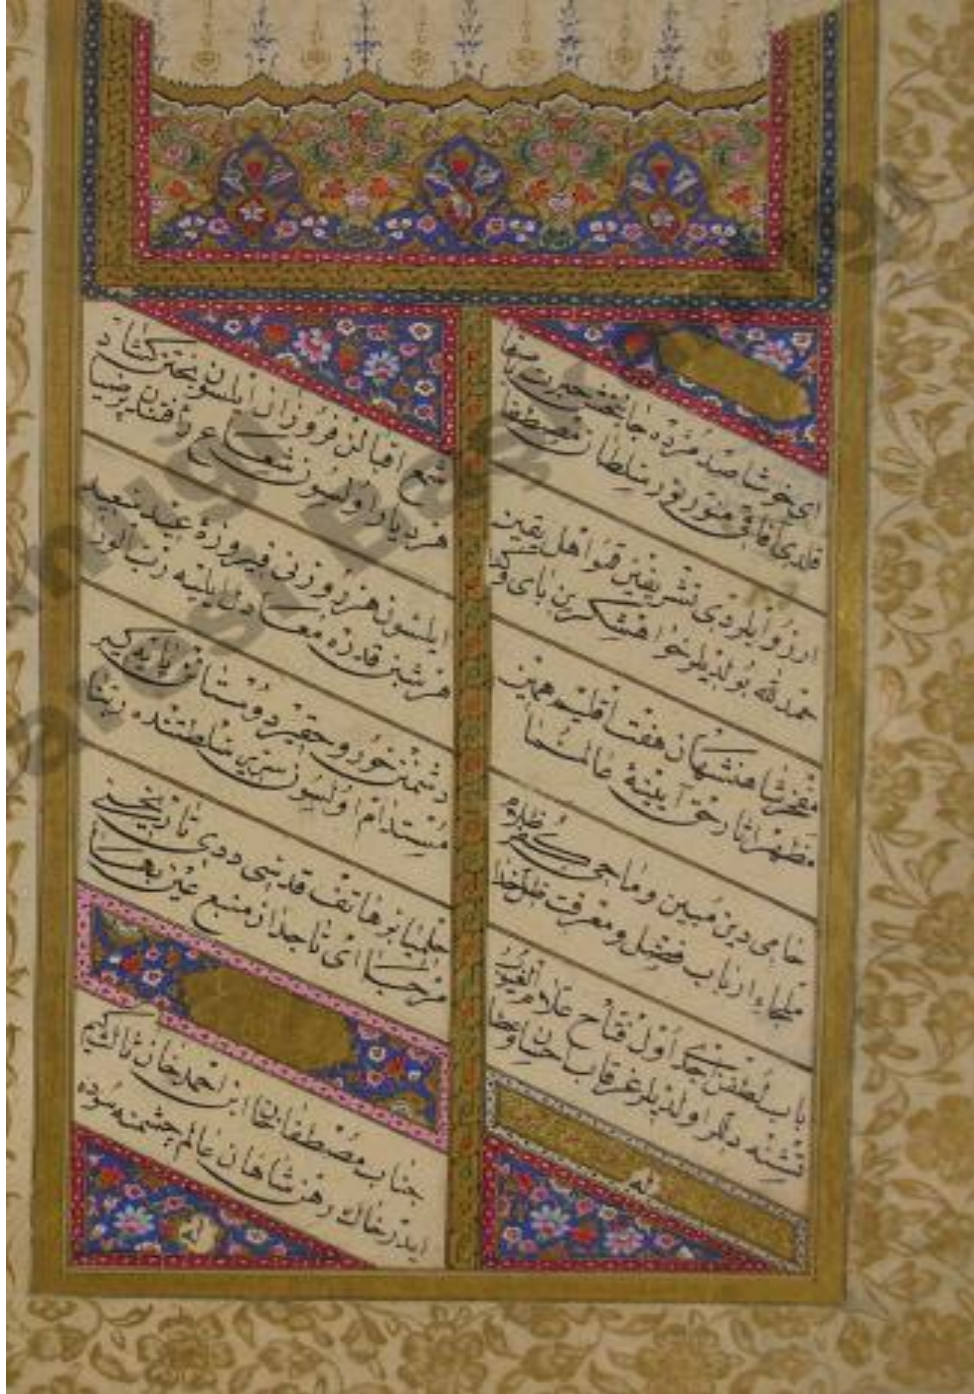 ای خوشا صد مژده جانبخش حیرت
قلدی آفاقی منور نور سلطان مصطفا
ارزو ایلردی تشریفین قمو اهل یقین
حمد لله بولدیلر خواهشکرین بای و کدا
مفخر شاهنشهان هفت اقلیم همین
مظهر اثار حق آیینهٔ عالمنما
حامی دین مبین و ماحی کفر ظلام
ملجاء ارباب فضل و معرفت ظل خدا
باب لطفن ایتدی اول فتاح علام الغیوب
تشنه دللر اولدیلر غرقاب احسان و عطا
له
شمع اقبالن فروزان ایلسون بختن کشاد
هر دیارا اولسون شعاع رافتندن پر ضیا
ایلسون هر روزنی فیروزهٔ عید سعید
هر شبن قدره معادل ایلیه رب الورا
دشمنن خور و حقیر دوستانن پایه کیر
مستدام اولسون سریر سلطنتده ربنا
حلمیا بر هاتف قدسی ددی تاریخنی
مرحبا ای تاجدار منبع عین بها
جناب مصطفا الخا ابن احمد خان ثالث کیم
ایدر خاک رهن شاهان عالم چشمنه سوده
له